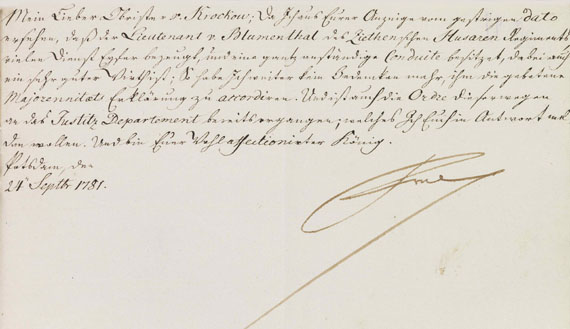 Mein Lieber Obrister v. Krockow; Da Ich aus Eurer Anzeige vom gestrigen dato
ersehen, daß der Lieutenant v. Blumenthal des Ziethenschen Husaren Regiments
vielen Dienst Eyfer bezeugt, und eine gantz anständige Conduite besitzet, dabei auch
ein sehr guter Wirth ist; So habe Ich weiter kein Bedenken mehr, ihm die gebetene
Majorennitets Erklärung zu accordiren. Und ist auch die Ordre dieserwegen
an das Justitz Departement bereits ergangen; welches Ich Euch in Antwort mel
den wollen. Und bin Euer Wohl affectionirter König.
Potsdam, den
24 Septbr 1781.